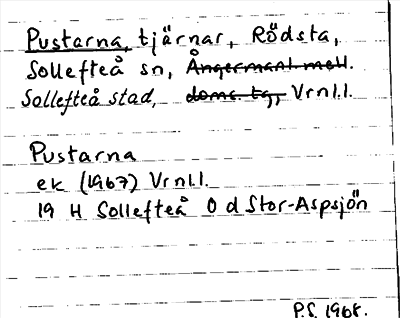 Pustarna, tjärnar, Rödsta,
Sollefteå sn, Ångermanl. mell.
Sollefteå stad, doms. tg, Vrnl.l.
Pustarna
ek (1967) Vrnl.l.
19 H Sollefteå O d Stor-Aspsjön
P.S. 1968.